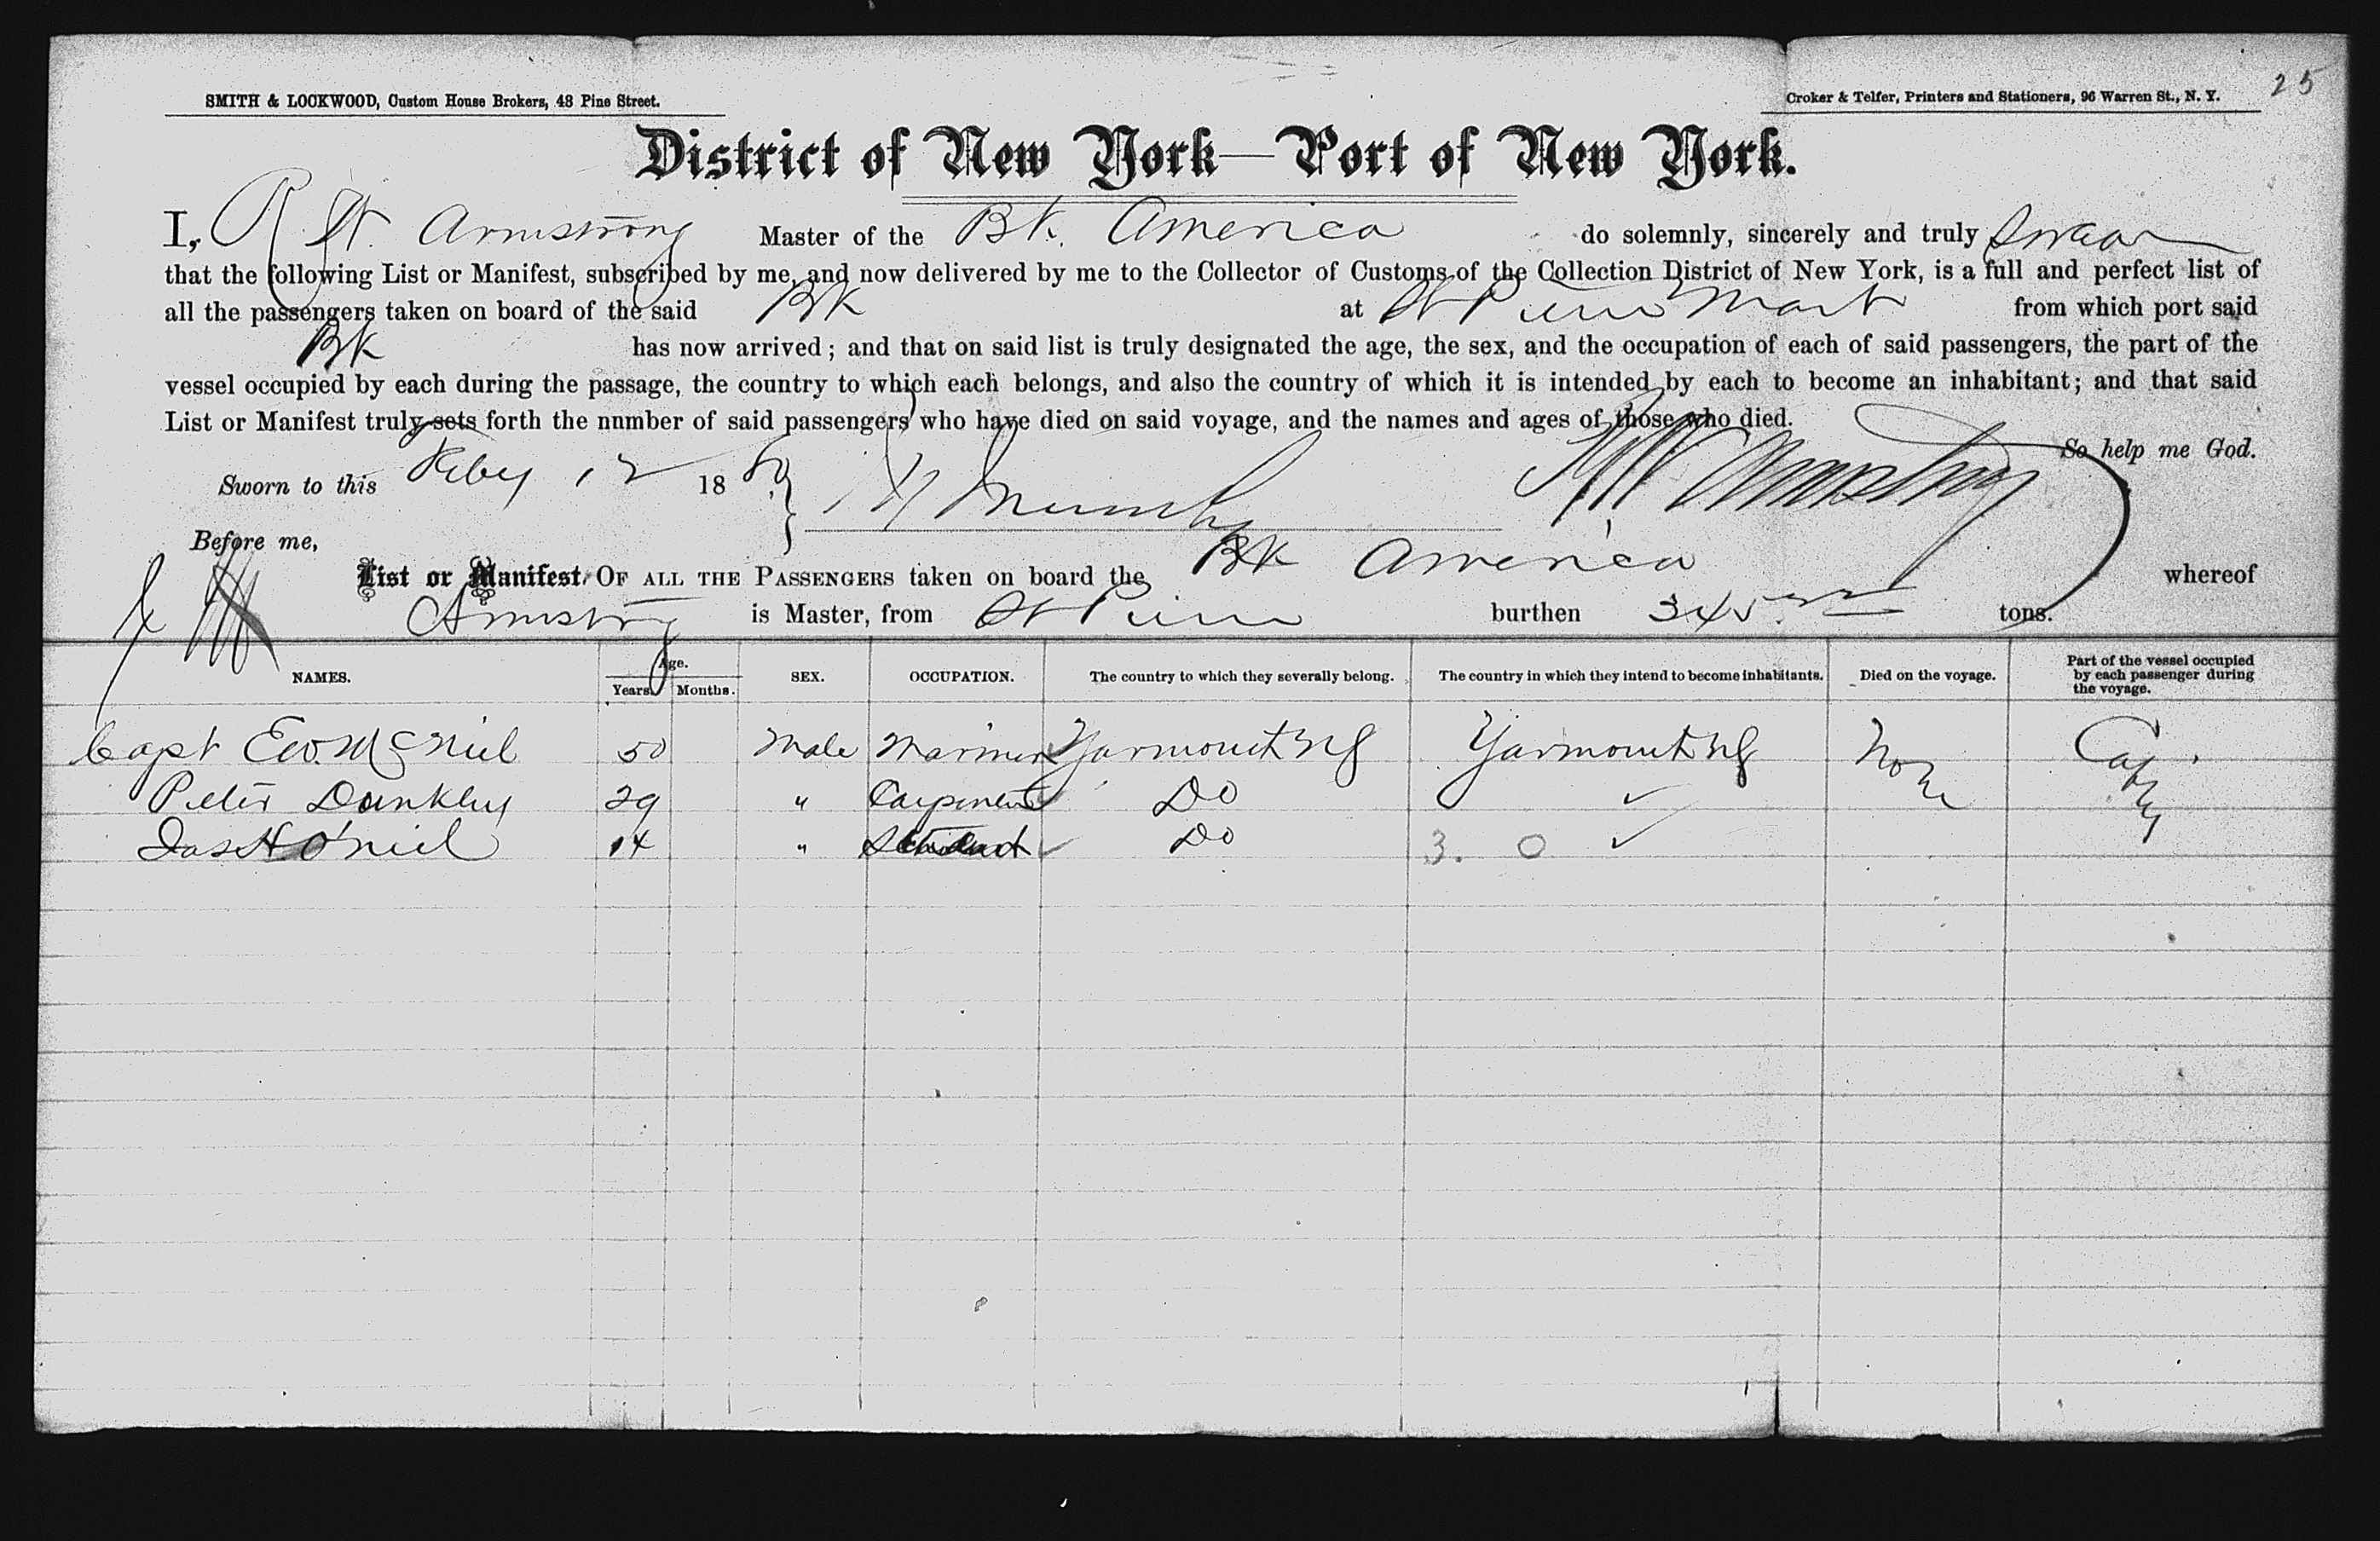 25
SMITH & LOCKWOOD, Custom House Brokers, 43 Pine Street.
Croker & Telfer, Printers and Stationers, 96 Warren St., N. Y.
District of New York—Port of New York.
I, R. W. Armstrong Master of the Bk. America do solemnly, sincerely and truly Swear
that the following List or Manifest, subscribed by me, and now delivered by me to the Collector of Customs of the Collection District of New York, is a full and perfect list of
all the passengers taken on board of the said Bk at St Pierre Mart from which port said
Bk has now arrived; and that on said list is truly designated the age, the sex, and the occupation of each of said passengers, the part of the
vessel occupied by each during the passage, the country to which each belongs, and also the country of which it is intended by each to become an inhabitant; and that said
List or Manifest truly sets forth the number of said passengers who have died on said voyage, and the names and ages of those who died.
So help me God.
Sworn to this Feby 12 18 RW Armstrong
Before me,
List or Manifest. OF ALL THE PASSENGERS taken on board the Bk America whereof
Armstrong is Master, from St Pierre burthen 345 tons.
NAMES. Age. Years. Months. SEX. OCCUPATION. The country to which they severally belong. The country in which they intend to become inhabitants. Died on the voyage. Part of the vessel occupied by each passenger during the voyage.
Capt McNiel 50 Male Mariner Yarmouth NS Yarmouth NS None
Peter Dunkley 29 " Carpenter Do ✓
Jas H. O'Niel 14 " Student ✓ Do 3. 0 ✓